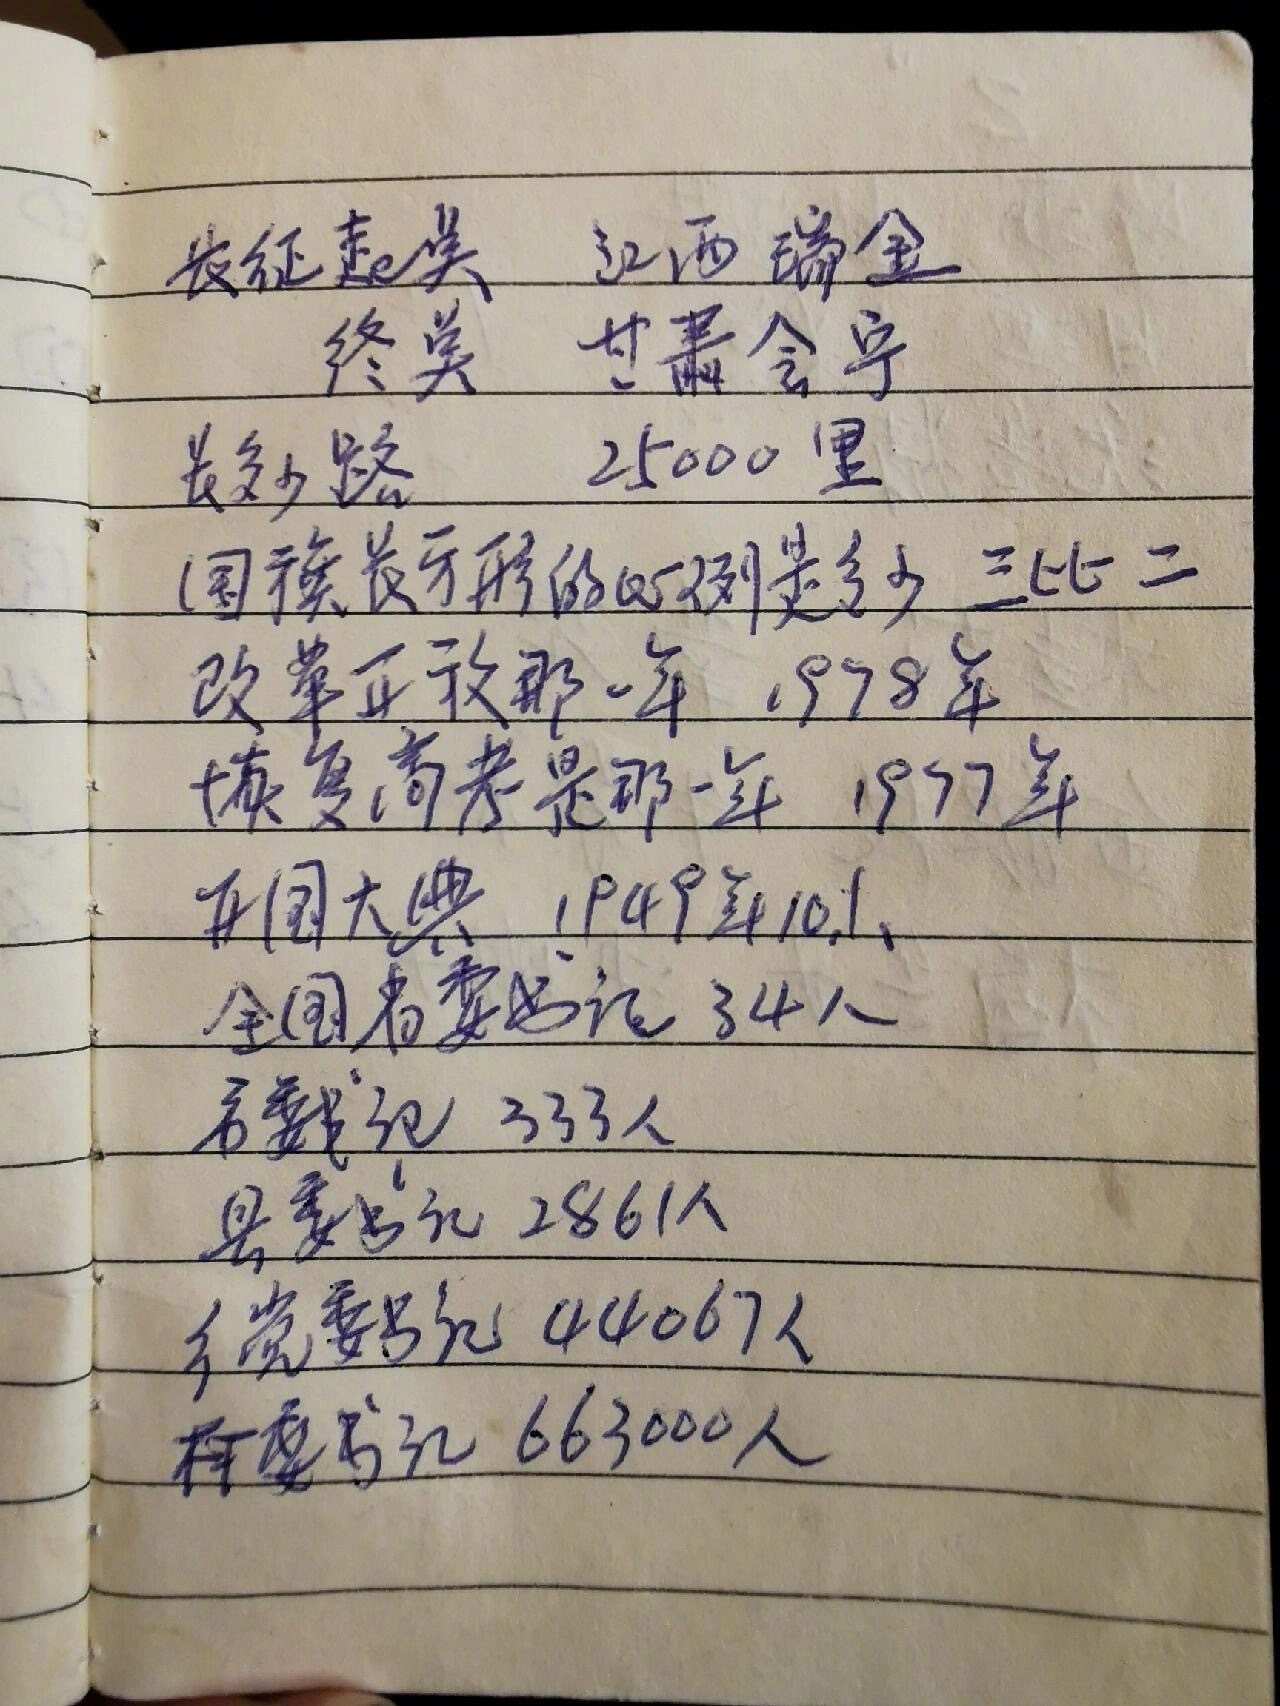 长征起点 江西瑞金
终点 甘肃会宁
长多少路 25000里
国旗长方形的比例是多少 三比二
改革开放那一年 1978年
恢复高考是那一年 1977年
开国大典 1949年10.1、
全国省委书记 34人
市委书记 333人
县委书记 2861人
乡党委书记 44067人
村委书记 663000人